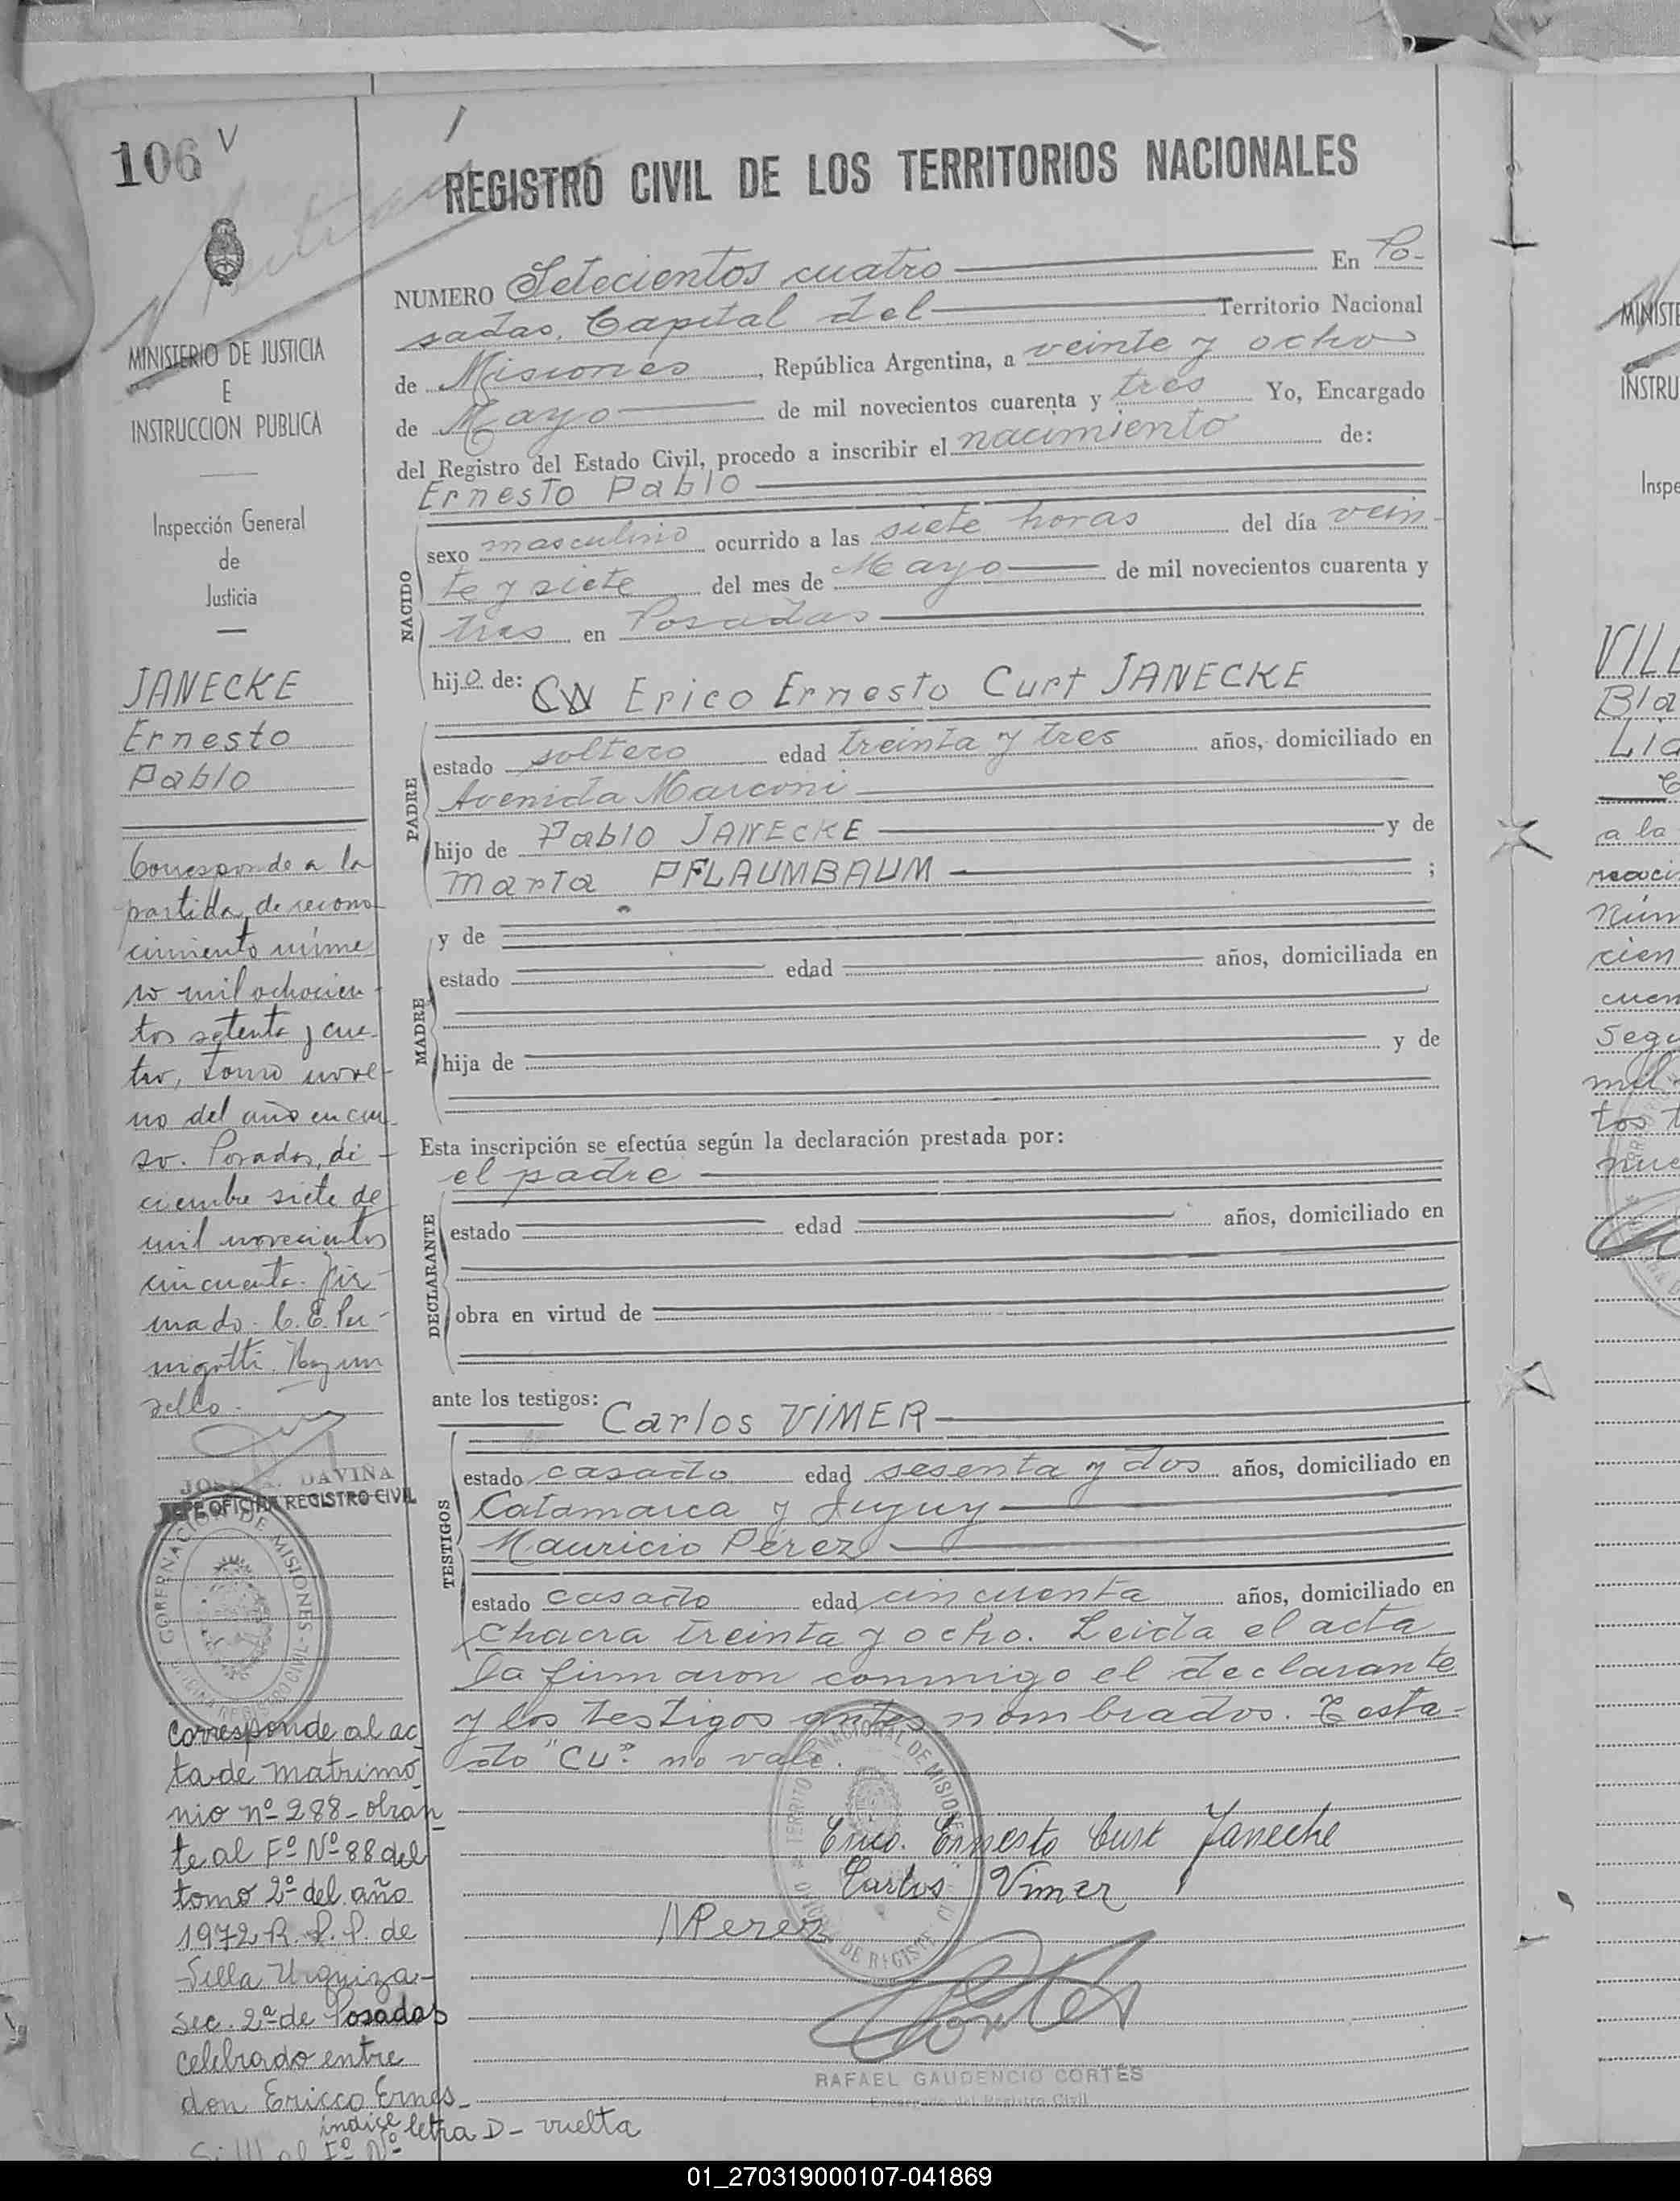 106 V
REGISTRO CIVIL DE LOS TERRITORIOS NACIONALES
NUMERO Setecientos cuatro En Po-
sadas, Capital del Territorio Nacional
de Misiones, República Argentina, a veinte y ocho
de Mayo de mil novecientos cuarenta y tres Yo, Encargado
del Registro del Estado Civil, procedo a inscribir el nacimiento de:
Ernesto Pablo
NACIDO
sexo masculino ocurrido a las siete horas del día vein-
te y siete del mes de Mayo de mil novecientos cuarenta y
tres en Posadas
hijo de: Cu Erico Ernesto Curt JANECKE
PADRE
estado soltero edad treinta y tres años, domiciliado en
Avenida Marconi
hijo de Pablo JANECKE y de
Marta PFLAUMBAUM ;
MADRE
y de
estado edad años, domiciliada en
hija de y de
Esta inscripción se efectúa según la declaración prestada por:
el padre
DECLARANTE
estado edad años, domiciliado en
obra en virtud de
ante los testigos:
Carlos VIMER
TESTIGOS
estado casado edad sesenta y dos años, domiciliado en
Catamarca y Jujuy
Mauricio Pérez
estado casado edad cincuenta años, domiciliado en
Chacra treinta y ocho. Leida el acta
la firmaron conmigo el declarante
y los testigos antes nombrados. Testa-
do "Cu". no vale.
Erico. Ernesto Curt Janecke
Carlos Vimer
MPerez
Cortes
RAFAEL GAUDENCIO CORTÉS
Encargado del Registro Civil
MINISTERIO DE JUSTICIA
E
INSTRUCCION PUBLICA
Inspección General
de
Justicia
JANECKE
Ernesto
Pablo
Corresponde a la
partida de recono-
cimiento núme-
ro mil ochocien-
tos setenta y cua-
tro, tomo nove-
no del año en cur-
so. Posadas, di-
ciembre siete de
mil novecientos
cincuenta. Fir-
mado. C. E. Hay un
sello.
DAVIÑA
JEFE OFICINA REGISTRO CIVIL
GOBERNACION DE MISIONES
Corresponde al ac-
ta de matrimo-
nio nº 288 - obran-
te al Fº Nº 88 del
tomo 2º del año
1972 R. P. P. de
Villa Urquiza -
Sec. 2ª de Posadas
celebrado entre
don Ericco Ernes-
indice letra D - vuelta
MINISTE
INSTRU
Inspe
VILL
Bla
a la
Núm
cien
cuen
Segu
mil
tos t
nue
01_270319000107-041869